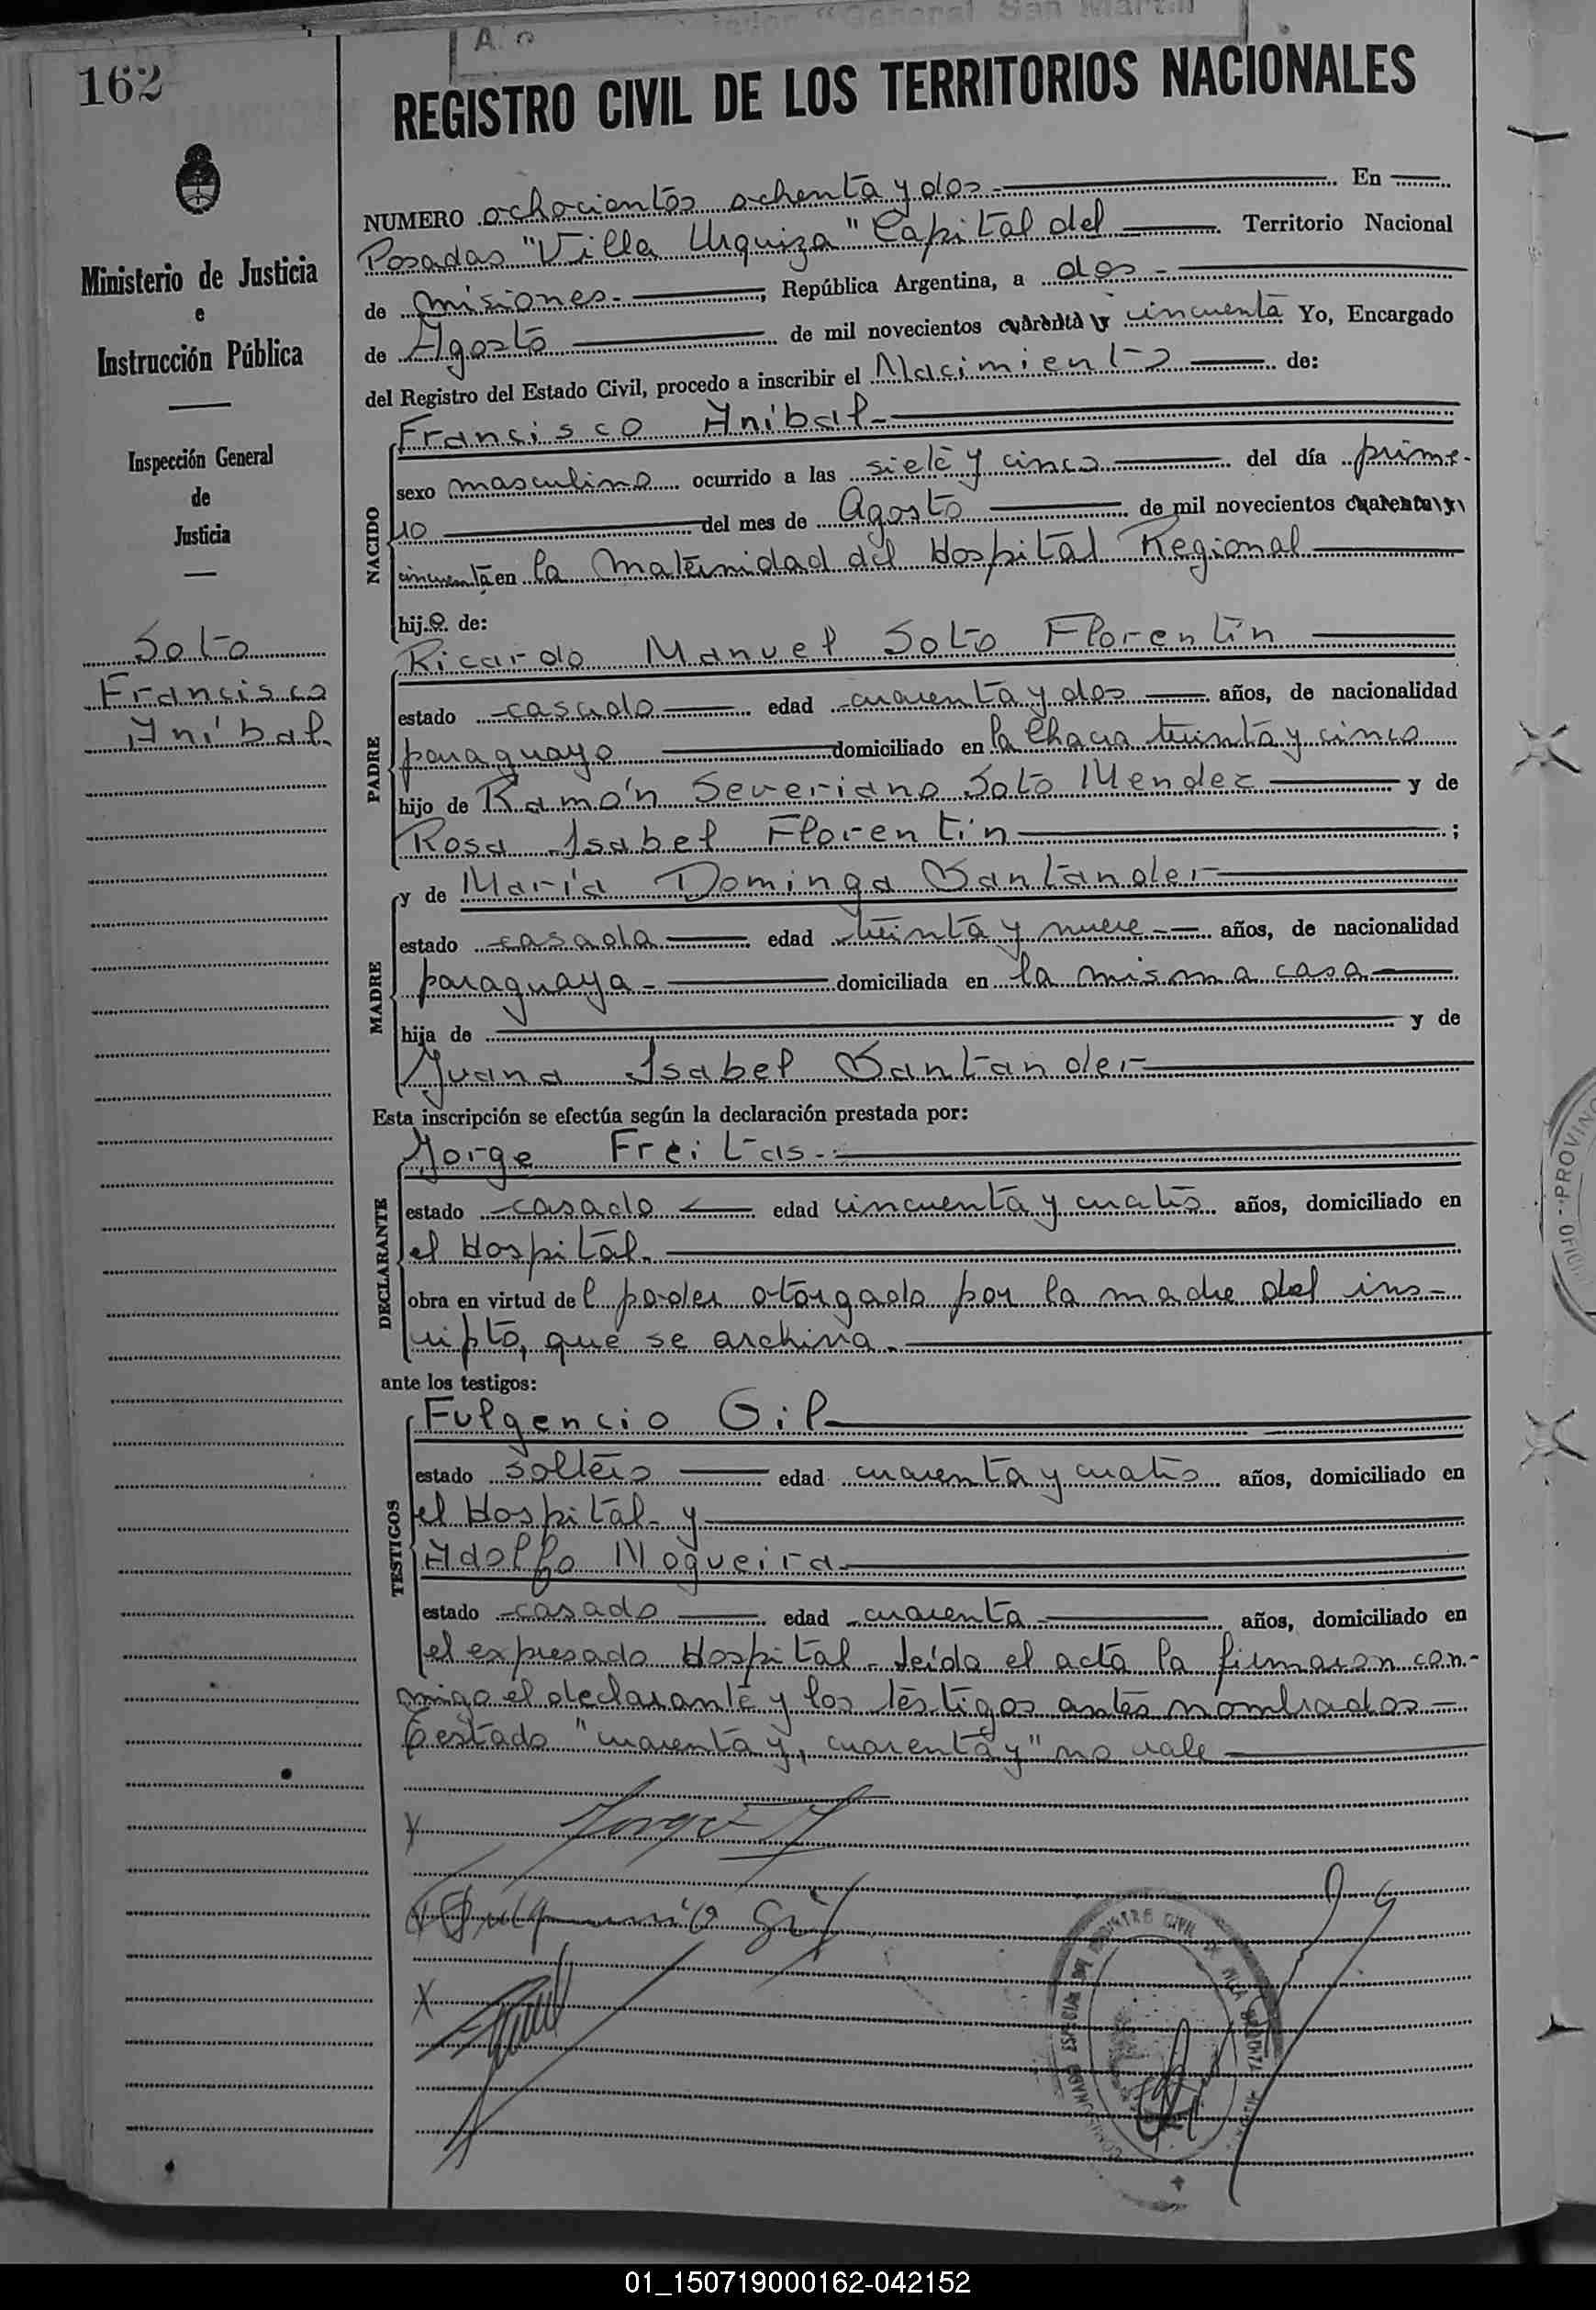 "General San Martín
A. n
162
REGISTRO CIVIL DE LOS TERRITORIOS NACIONALES
Ministerio de Justicia
e
Instrucción Pública
Inspección General
de
Justicia
Soto
Francisco
Aníbal
NUMERO ochocientos ochenta y dos.- En
Posadas "Villa Urquiza" Capital del Territorio Nacional
de Misiones.- , República Argentina, a dos -
de Agosto de mil novecientos cuarenta y cincuenta Yo, Encargado
del Registro del Estado Civil, procedo a inscribir el Nacimiento de:
NACIDO
Francisco Aníbal-
sexo masculino ocurrido a las siete y cinco del día prime-
ro del mes de Agosto de mil novecientos cuarenta y
cincuenta en la Maternidad del Hospital Regional
hijo de:
PADRE
Ricardo Manuel Soto Florentín
estado casado edad cuarenta y dos años, de nacionalidad
paraguayo domiciliado en la Chacra treinta y cinco
hijo de Ramón Severiano Soto Mendez y de
Rosa Isabel Florentín ;
MADRE
y de María Dominga Santander
estado casada edad treinta y nueve -- años, de nacionalidad
paraguaya - domiciliada en la misma casa
hija de y de
Juana Isabel Santander
Esta inscripción se efectúa según la declaración prestada por:
DECLARANTE
Jorge Freitas.-
estado casado edad cincuenta y cuatro años, domiciliado en
el Hospital.
obra en virtud del poder otorgado por la madre del ins-
cripto, que se archiva.
ante los testigos:
TESTIGOS
Fulgencio Gil
estado soltero edad cuarenta y cuatro años, domiciliado en
el Hospital- y
Adolfo Nogueira
estado casado edad cuarenta años, domiciliado en
el expresado Hospital- Leída el acta la firmaron con-
migo el declarante y los testigos antes nombrados -
Testado "cuarenta y, cuarenta y" no vale
x Jorge F
x Fulgencio Gil
x
REGISTRO CIVIL DE VILLA URQUIZA
PROVIN
OFICI
01_150719000162-042152